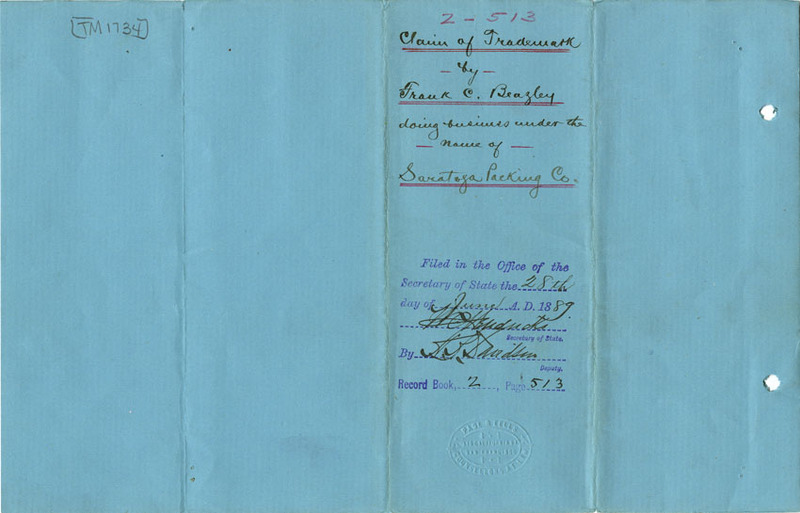 [TM 1734]
2-513
Claim of Trademark
- by -
Frank C. Beazley
doing business under the
- name of -
Saratoga Packing Co.
Filed in the Office of the
Secretary of State the 28th
day of A. D. 1889.
Secretary of State.
By
Deputy.
Record Book, 2, Page 513